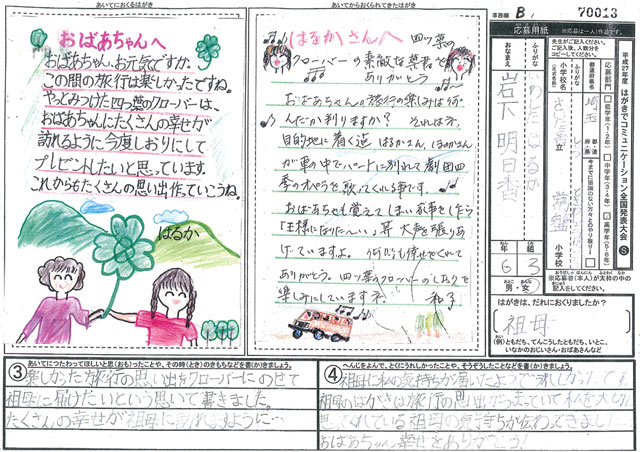 あいてにおくるはがき
おばあちゃんへ
おばあちゃん、お元気ですか。
この間の旅行は楽しかったですね。
やっとみつけた四つ葉のクローバーは、
おばあちゃんにたくさんの幸せが
訪れるように今度しおりにして
プレゼントしたいと思っています。
これからもたくさんの思い出作っていこうね。
はるか
あいてからおくられてきたはがき
はるかさんへ 四ツ葉の
クローバーの素敵な葉書を
ありがとう
おばあちゃんの旅行の楽しみは何
んだか判りますか? それは、
目的地に着く迄 はるかさん、
が車の中でパートに別れて劇団四
季のオペラを歌ってくれる事です。
おばあちゃんも覚えてしまい家事をしたら
「王様になりた〜い」等 大声を張りあ
げていますよ。何時も幸せをくれて
ありがとう。四ツ葉のクローバーのしおりを
楽しみにしています。 和子
事務欄 B. 70013
応募用紙
※応募は一人1作品です。
先生がご記入ください。
ご記入後、人数分を
コピーしてください。
平成27年度 はがきでコミュニケーション全国発表大会 S
応募部門
低学年(1・2年)
中学年(3・4年)
高学年(5・6年)
都道府県名
埼玉
都道府県
小学校名
立
小学校
今までに面識のない方々とのやり取り
※応募者(本人)が太枠の中の
記入をしてください。
ふりがな
おなまえ
岩下 明日香
年 6
組 3
男・女
はがきは、だれにおくりましたか?
祖母
(例)ともだち、てんこうしたともだち、いとこ、
いなかのおじいさん・おばあさんなど
③ あいてにつたわってほしいと思(おも)ったことや、その時(とき)のきもちなどを書(か)きましょう。
楽しかった旅行の思い出をクローバーにのせて
祖母に届けたいという思いで書きました。
たくさんの幸せが祖母に訪れますように…
④ へんじをよんで、とくにうれしかったことや、そうぞうしたことなどを書(か)きましょう。
祖母に私の気持ちが届いたようでうれしかったです。
祖母のはがきには旅行の思い出がつまっていて私を大切に
思ってくれている祖母の気持ちが伝わってきました!
おばあちゃん、幸せをありがとう!